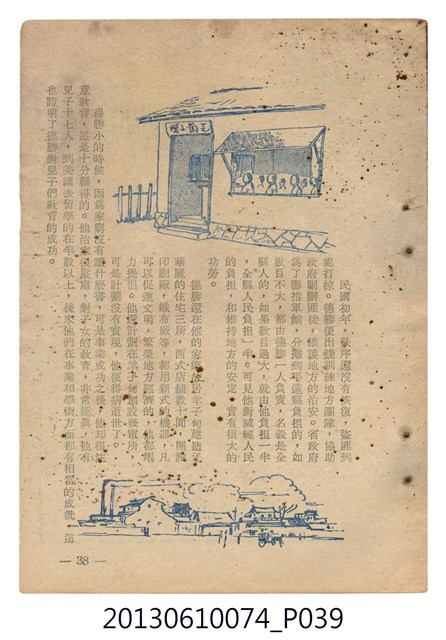 民國初年，秩序還沒有恢復，盜匪到
處打掠。德勝便出錢訓練地方團隊，協助
政府剿辦匪徒，維護地方的治安。省政府
爲了籌措軍餉，分攤到平遠縣負擔的，如
數目不大，都由德勝一人負責，名義是全
縣人的，如果數目過大，就由他負擔一半
，全縣人民負擔一半。可見他對減輕人民
的負擔，和維持地方的安定，實有很大的
功勞。
德勝還在他的家鄉
建造了
華麗的住宅三所，西式店舖數十間，開設
印刷廠，織布廠等，都用新式的機器，凡
可以促進文明，繁榮地方經濟的，他都竭
力提倡。他還計劃在
創設發電所
可是計劃沒有實現，他便得病逝世了。
德勝小的時候，因爲家窮沒有讀什麼書，可是事業成功之後，他却很注
意教育，這是十分難得的。他治家很嚴肅，對子女的教育，非常認真，他有
兒子十七人，到美國去留學的在半數以上，後來他們在事業和學術方面都有相當的成就，這
也證明了德勝對兒子們教育的成功。
— 38 —
20130610074_P039